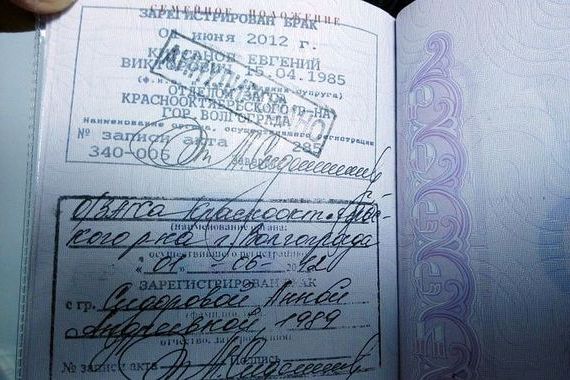 СЕМЕЙНОЕ ПОЛОЖЕНИЕ
ЗАРЕГИСТРИРОВАН БРАК
ИЮНЯ 2012 г.
ЕВГЕНИЙ
15.04.1985
КРАСНООКТЯБРЬСКОГО Р-НА
ГОР. ВОЛГОГРАДА
наименование органа, осуществившего регистрацию
№ записи акта 285
340-006
ОЗАГСа Краснооктябрьс-
кого р-на г. Волгограда
(наименование органа,
осуществившего регистрацию)
"01" - 06 -
ЗАРЕГИСТРИРОВАН БРАК
с гр. Сидоровой Анной
Андреевной, 1989
отчество, дата рождения)
№ записи акта Подпись